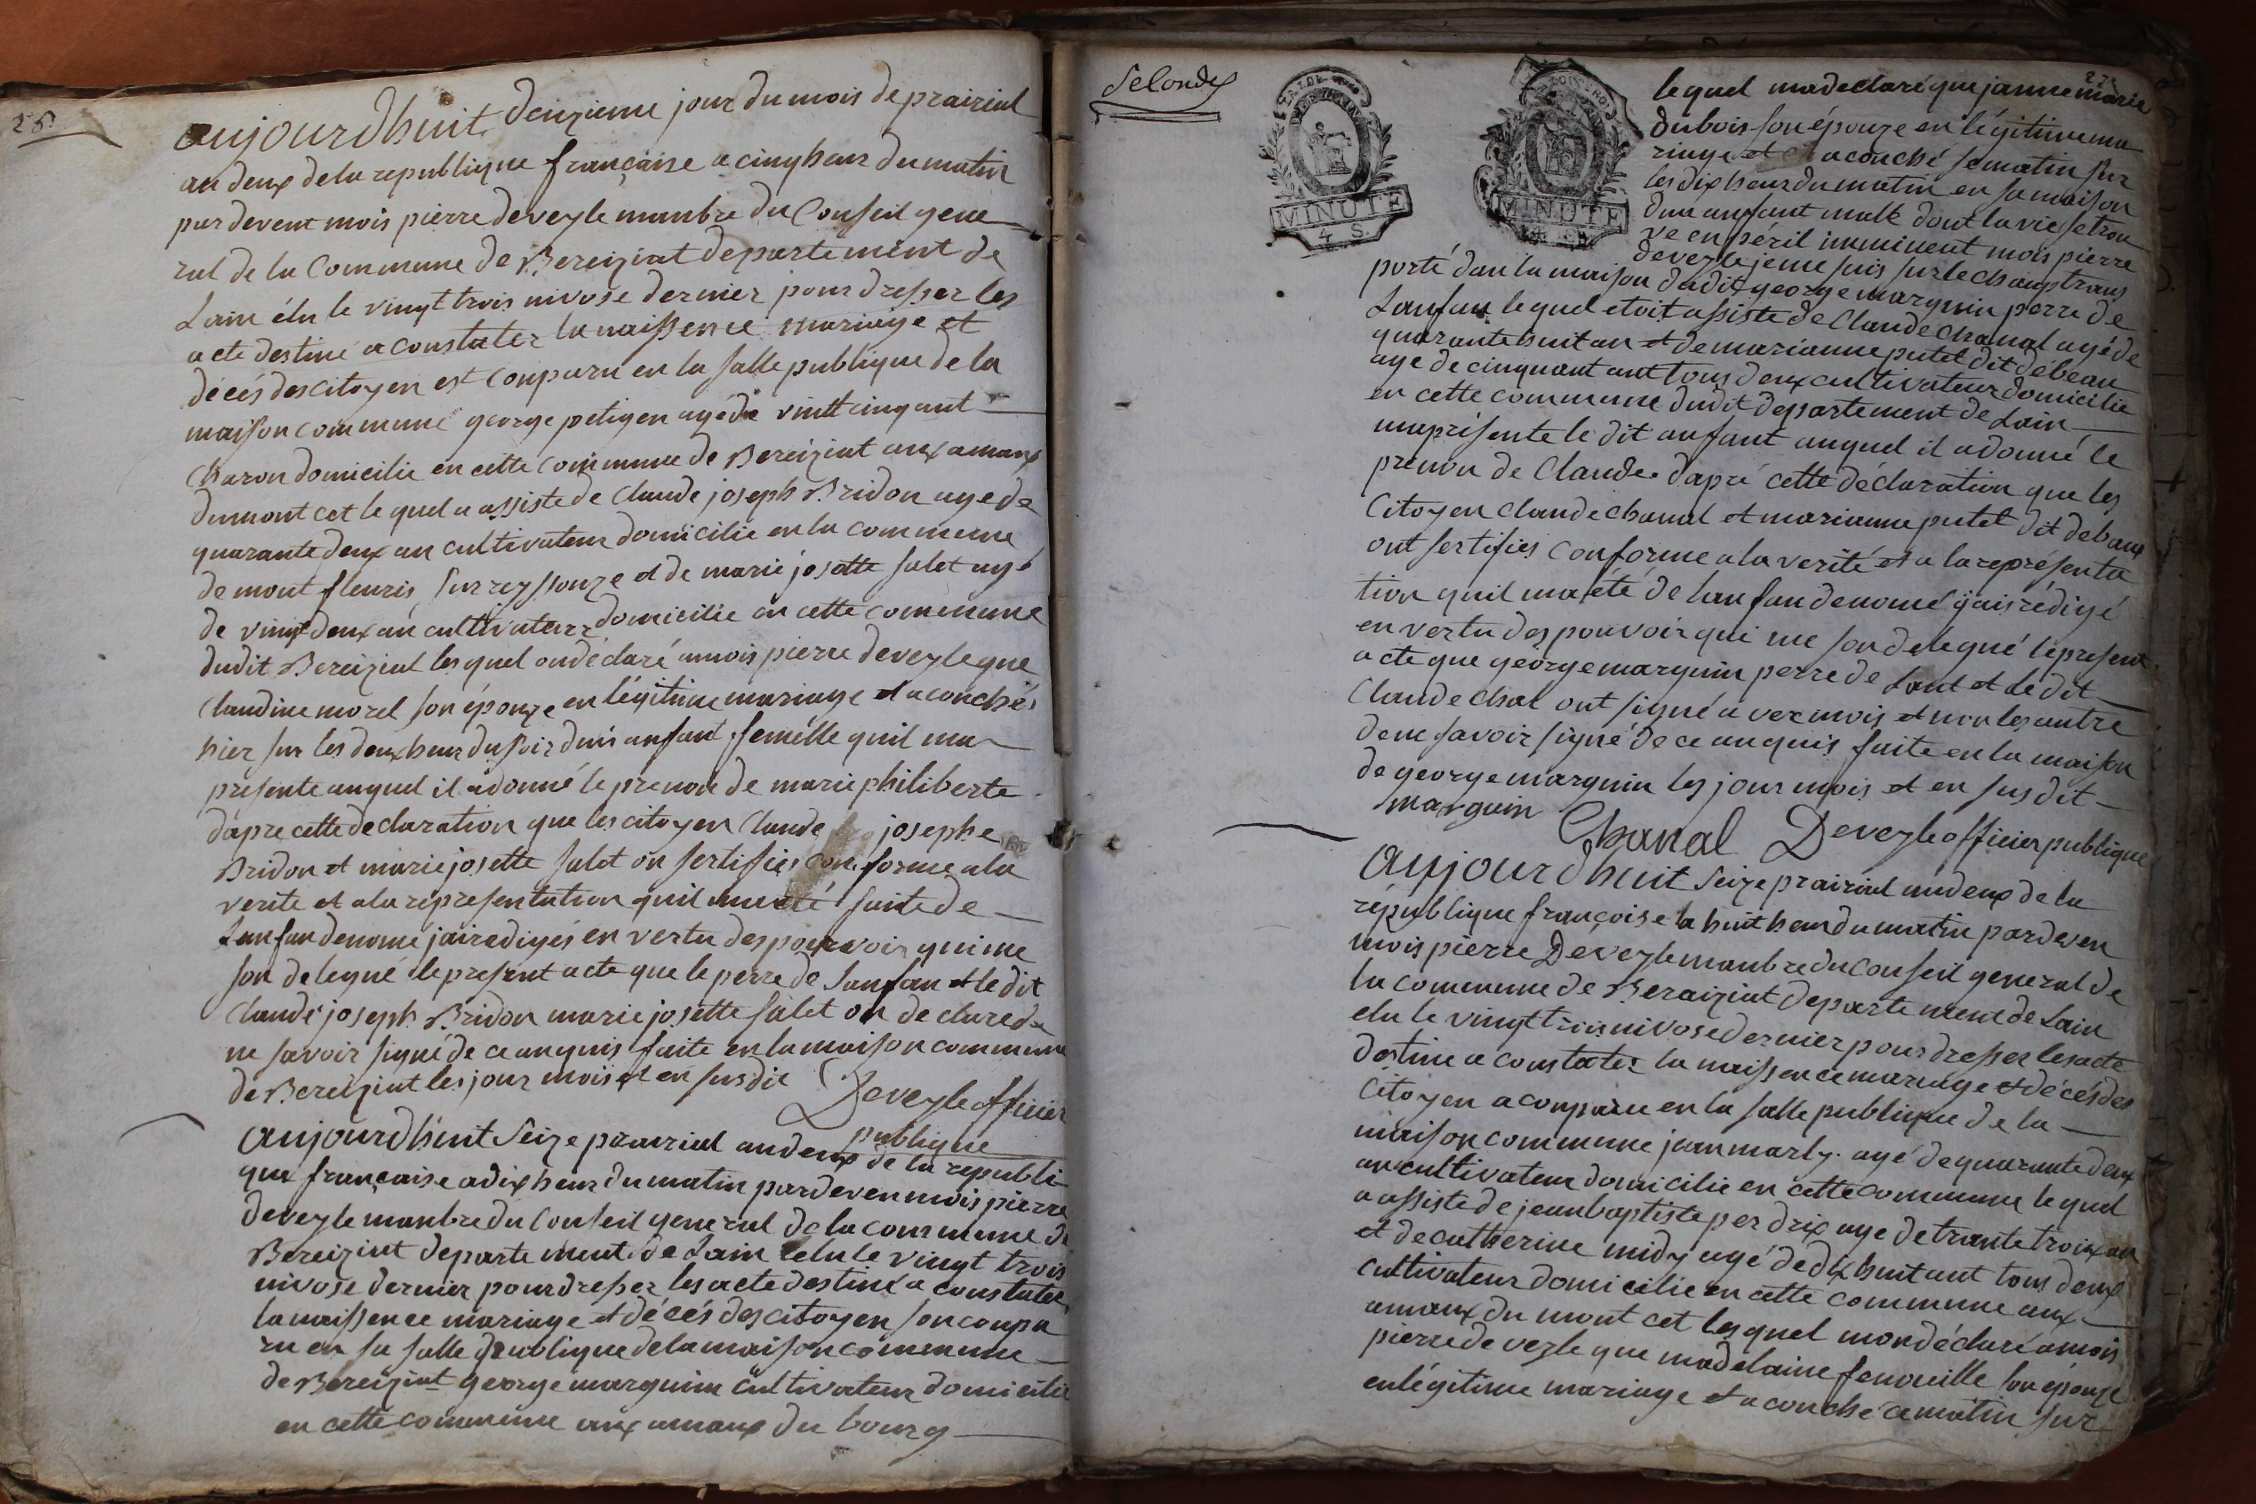 28
aujourdhuit deuzieme jour du mois de prairial
an deux de la republique françaize a cinq heur du matin
par devent mois pierre deveyle manbre du Conseil gene
ral de la Commune de Bereiziat departement de
Lain élu le vingt trois nivose dernier pour dresser les
acte destiné a constater la naissence mariage et
décés des citoyen est conparu en la salle publique de la
maison commune george petigen agé de vintt cinq ant
Charon domicilie en cette commune de Bereiziat aux amaux
dumont cet le quel a assiste de Claude joseph Bridon age de
quarante deux an cultivateur domicilie en la commune
de mont fleuris sur reyssouze et de marie josette salet agé
de vingt deux an cultivateur domicilie en cette commune
dudit Bereiziat les quel on declaré a mois pierre deveyle que
Claudine morel son épouze en légitime mariage et a couchés
hier sur les deux heur du soir dun anfant femélle quil ma
presente auquel il a donné le prenon de marie philiberte
dapre cette declaration que les citoyen Claude josephe
Bridon et marie josette salet on sertifies conforme a la
verite et a la representation quil ma eté faite de
Lanfan denome jai redigés en vertu des pouvoir qui me
son delegué le present acte que le perre de Lanfan et le dit
Claude joseph Bridon marie josette salet on declare de
ne savoir signé de ce anquis faite en la maison commune
de Bereiziat les jour mois et en susdit Deveyle officier
publique
aujourdhuit Seize prairial an deux de la republi
que françaize a dix heur du matin par deven mois pierre
deveyle manbre du Conseil general de la commune de
Bereiziat departement de Lain elu le vingt trois
nivose dernier pour dresser les acte destiné a constater
la naissence mariage et décés des citoyen son conpa
ru en sa salle publique de la maison commune
de Bereiziat george marguin cultivateur domicilie
en cette commune aux amaux du bourg
Selondex
MINUTE
4 S.
MINUTE
27
le quel ma declaré que janne marie
dubois son épouze en légitime ma
riage et a couché se matin sur
les dix heur du matin en sa maison
dun anfant malle dont la vie se trou
ve en péril imminent mois pierre
deveyle je me suis sur le champ trans
porté dan la maison dudit george marguin perre de
Lanfan le quel etoit assiste de Claude chanal agé de
quarante huit an et de marianne putet dit débeau
age de cinquant ant tous deux cultivateur domicilie
en cette commune dudit departement de Lain
maprésente le dit anfant auquel il a donné le
prenon de Claude dapré cette déclaration que les
Citoyen claude chanal et marianne putet dit debaux
ont sertifies conforme a la verité et a la représenta
tion quil ma été de lanfan denomé jais rédigé
en vertu des pouvoir qui me son delegué le present
acte que george marguin perre de Lant et le dit
Claude Chal ont signé a vec mois et non les autre
de ne savoir signé de ce anquis faite en la maison
de george marguin les jour mois et en susdit
marguin Chanal Deveyle officier publique
aujourdhuit seize prairial an deux de la
république françoise a huit heur du matin par deven
mois pierre Deveyle manbre du Conseil general de
la commune de Beraiziat departement de Lain
elu le vingt trois nivose dernier pour dresser les acte
destine a constater la naissence mariage et décés des
Citoyen a conparu en la salle publique de la
maison commune jean marly agé de quarante deux
an cultivateur domicilie en cette commune le quel
a assiste de jean baptiste per drix age de trante troix an
et de catherine midy agé de dix huit ant tous deux
cultivateur domicilie en cette commune aux
amaux du mont cet les quel mon déclaré a mois
pierre de veyle que madelaine fenouille son épouze
en légitime mariage et a couché ce matin sur